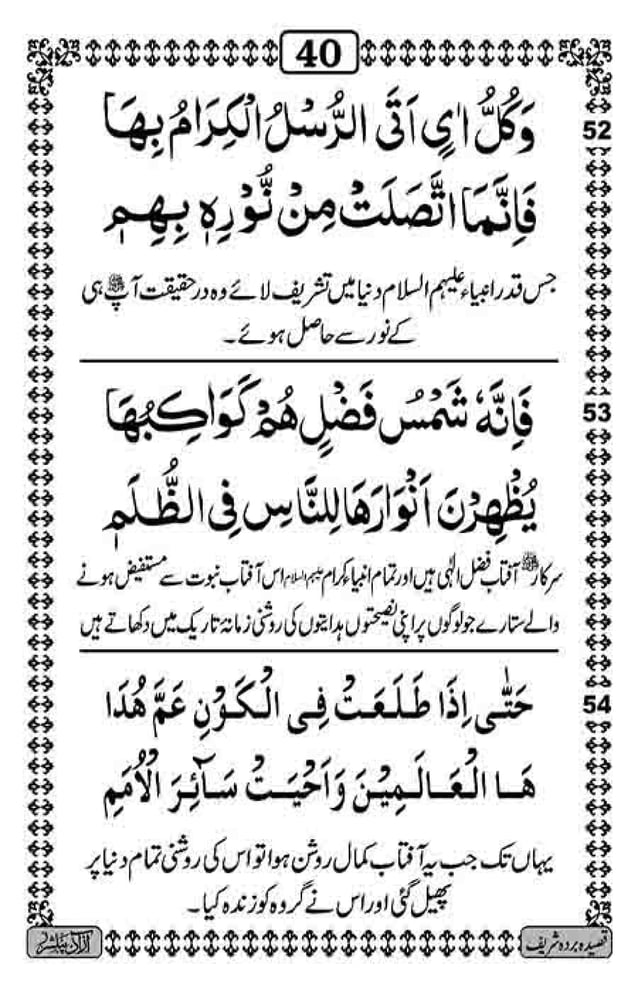 40
52
وَكُلُّ اٰيٍ اَتَى الرُّسْلُ الْكِرَامُ بِهَا
فَاِنَّمَا اتَّصَلَتْ مِنْ نُّوْرِهٖ بِهِمٖ
جس قدر انبیاء علیہم السلام دنیا میں تشریف لائے وہ در حقیقت آپ ﷺ ہی
کے نور سے حاصل ہوئے۔
53
فَاِنَّهٗ شَمْسُ فَضْلٍ هُمْ كَوَاكِبُهَا
يُظْهِرْنَ اَنْوَارَهَا لِلنَّاسِ فِى الظُّلَمٖ
سرکار ﷺ آفتاب فضل الٰہی ہیں اور تمام انبیاء کرام علیہم السلام اس آفتاب نبوت سے مستفیض ہونے
والے ستارے جو لوگوں پر اپنی نصیحتوں ہدایتوں کی روشنی زمانۂ تاریک میں دکھاتے ہیں
54
حَتّٰى اِذَا طَلَعَتْ فِى الْكَوْنِ عَمَّ هُدَا
هَا الْعَالَمِيْنَ وَاَحْيَتْ سَآئِرَ الْاُمَمِ
یہاں تک جب یہ آفتاب کمال روشن ہوا تو اس کی روشنی تمام دنیا پر
پھیل گئی اور اس نے گروہ کو زندہ کیا۔
قصیدہ بردہ شریف
آزاد پبلشرز